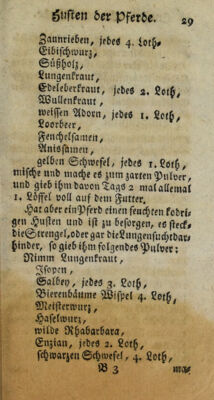 Husten der Pferde. 29
Zaunrieben, jedes 4. Loth.
Eibischwurz,
Süßholz,
Lungenkraut,
Edeleberkraut, jedes 2. Loth,
Wullenkraut,
weissen Adorn, jedes 1. Loth,
Loorbeer,
Fenchelsamen,
Anissamen,
gelben Schwefel, jedes 1. Loth,
mische und mache es zum zarten Pulver,
und gieb ihm davon Tags 2 mal allemal
1. Löffel voll auf dem Futter.
Hat aber ein Pferd einen feuchten kodri-
gen Husten und ist zu besorgen, es steck
die Strengel, oder gar die Lungensucht dar-
hinder, so gieb ihm folgendes Pulver:
Nimm Lungenkraut,
Isopen,
Salbey, jedes 3. Loth,
Bierenbäume Wispel 4. Loth,
Meisterwurz,
Haselwurz,
wilde Rhabarbara,
Enzian, jedes 2. Loth,
schwarzen Schwefel, 4. Loth,
B 3 ma-